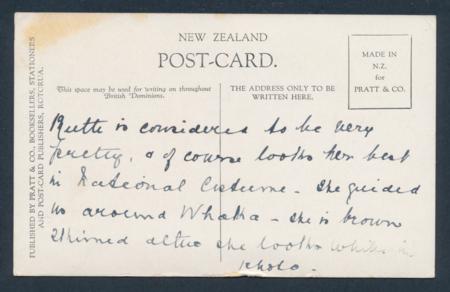 NEW ZEALAND
POST-CARD.
This space may be used for writing on throughout
British Dominions.
THE ADDRESS ONLY TO BE
WRITTEN HERE.
MADE IN
N.Z.
for
PRATT & CO.
PUBLISHED BY PRATT & CO., BOOKSELLERS, STATIONERS
AND POST-CARD PUBLISHERS, ROTORUA.
is considered to be very
pretty, & of course looks her best
in National Costume - she guided
us around Whaka - she is brown
skinned altho she looks white in
photo -